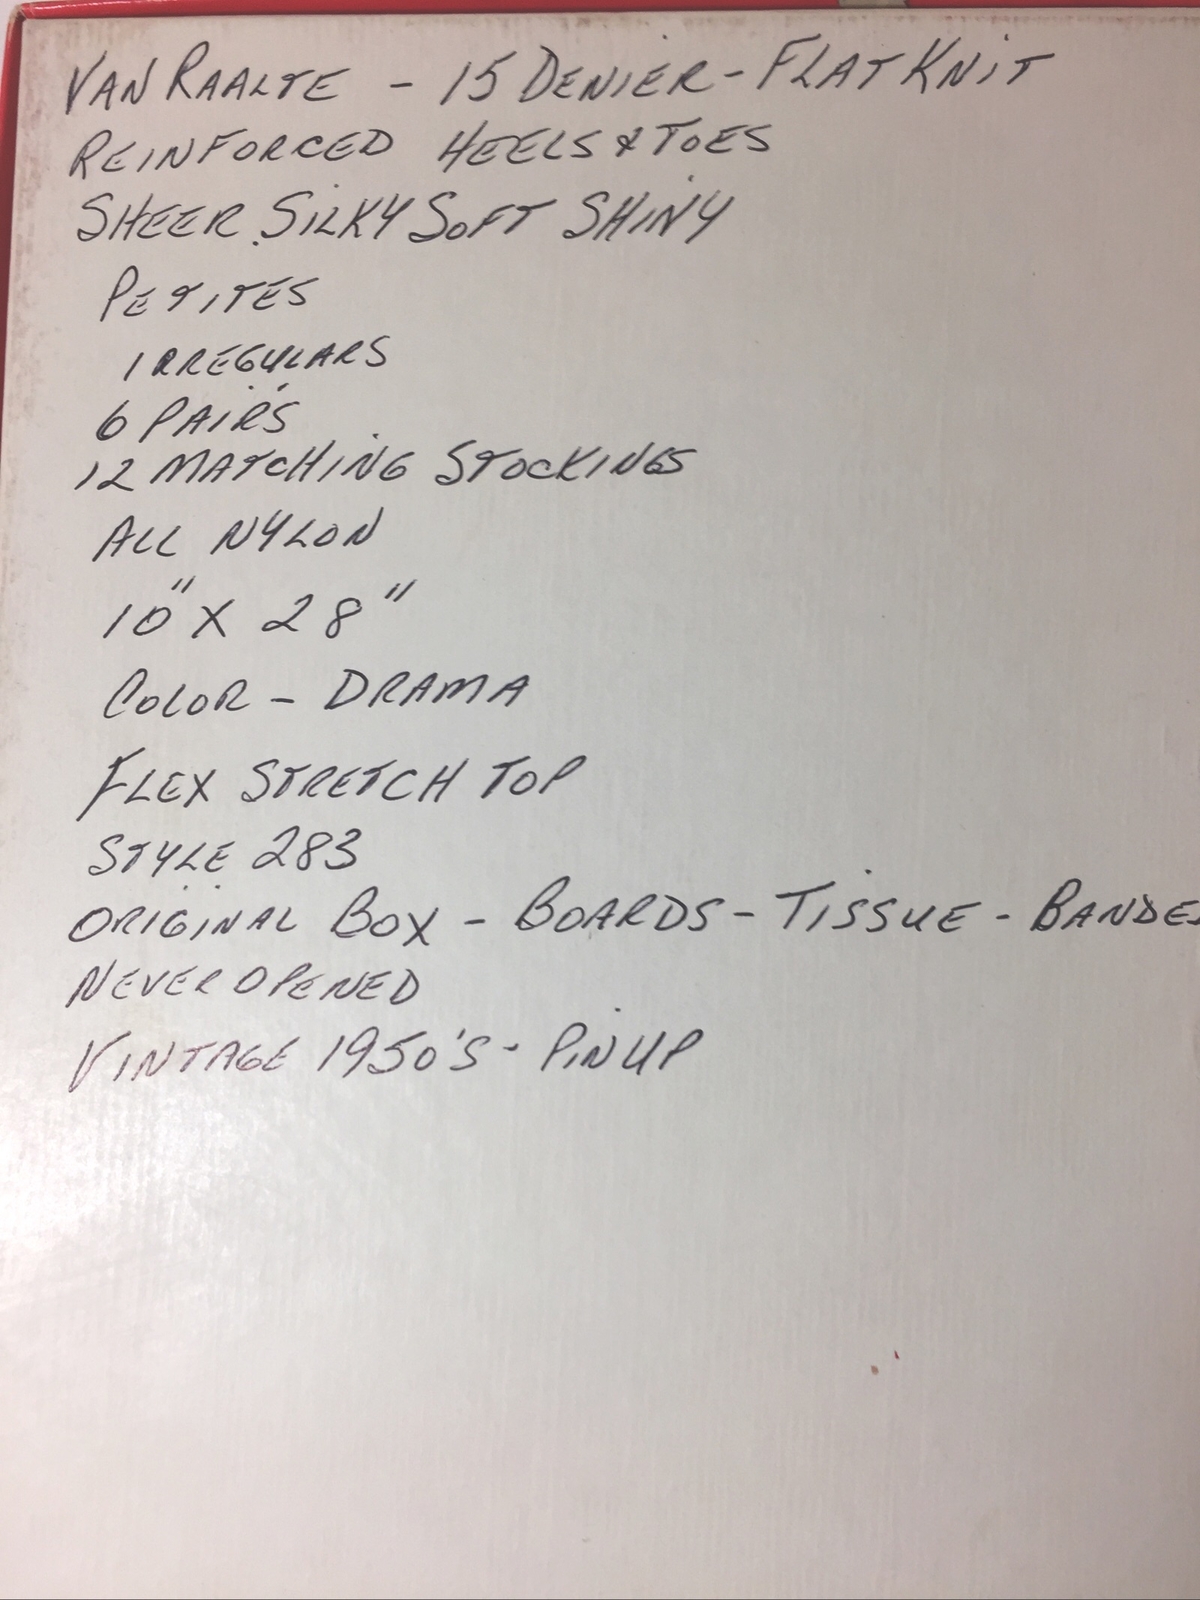 VAN RAALTE - 15 DENIER - FLAT KNIT
REINFORCED HEELS & TOES
SHEER SILKY SOFT SHINY
PETITES
IRREGULARS
6 PAIRS
12 MATCHING STOCKINGS
ALL NYLON
10" X 28"
COLOR - DRAMA
FLEX STRETCH TOP
STYLE 283
ORIGINAL BOX - BOARDS - TISSUE -
NEVER OPENED
VINTAGE 1950'S - PINUP